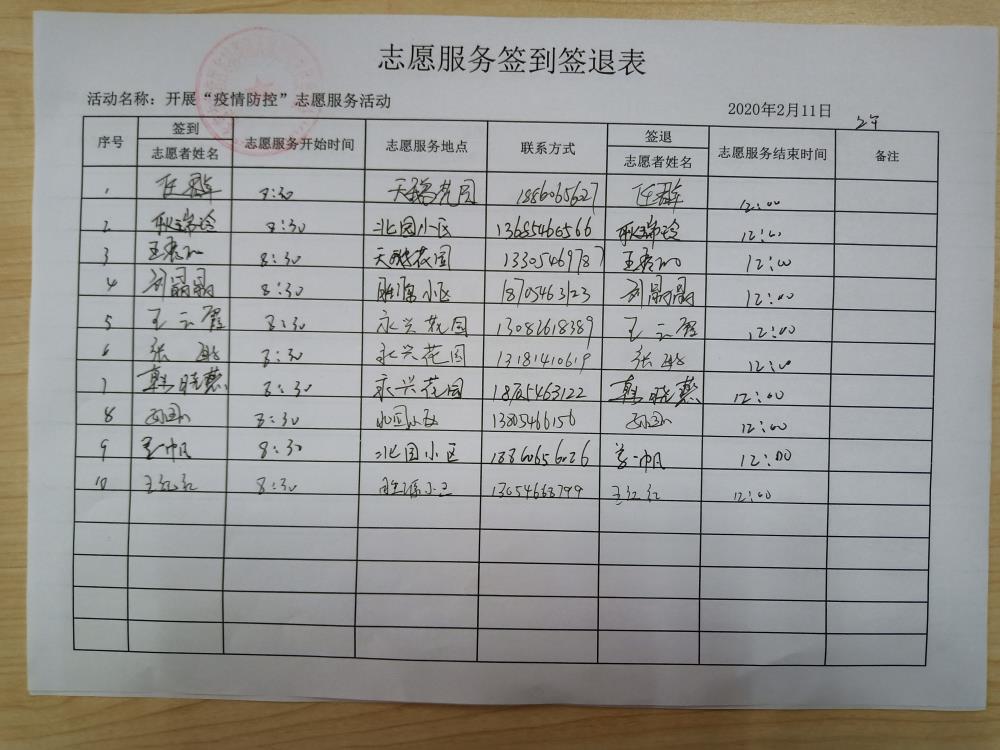 志愿服务签到签退表
活动名称：开展“疫情防控”志愿服务活动
2020年2月11日 上午
序号 签到 志愿者姓名 志愿服务开始时间 志愿服务地点 联系方式 签退 志愿者姓名 志愿服务结束时间 备注
1 8:30 天鹅花园 12:00
2 耿瑞玲 8:30 北园小区 13685466566 耿瑞玲 12:00
3 8:30 天鹅花园 13305469787 12:00
4 刘晶晶 8:30 胜源小区 18705463123 刘晶晶 12:00
5 王云霞 8:30 永兴花园 13082618389 王云霞 12:00
6 张 8:30 永兴花园 13181410619 张 12:00
7 韩晓慧 8:30 永兴花园 18705463122 韩晓慧 12:00
8 8:30 北园小区 13805466156 12:00
9 8:30 北园小区 18860656026 12:00
10 王红红 8:30 胜源小区 王红红 12:00